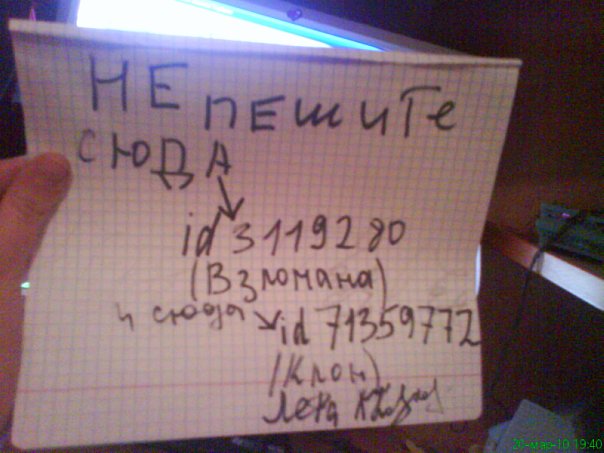 НЕ ПЕШИТЕ
СЮДА
id 3119280
(Взломана)
и сюда id 71359772
(Клон)
Лера
20-мар-10 19:40